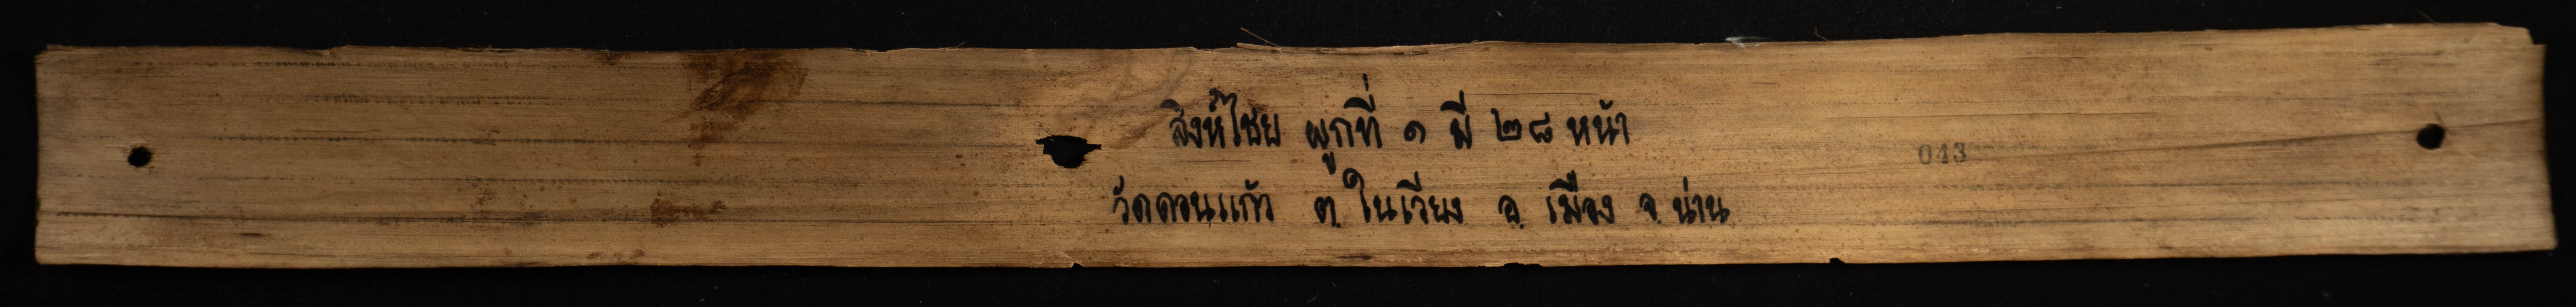 สิงห์ไชย ผูกที่ ๑ มี ๒๘ หน้า
043
วัดดอนแก้ว ต. ในเวียง อ. เมือง จ. น่าน